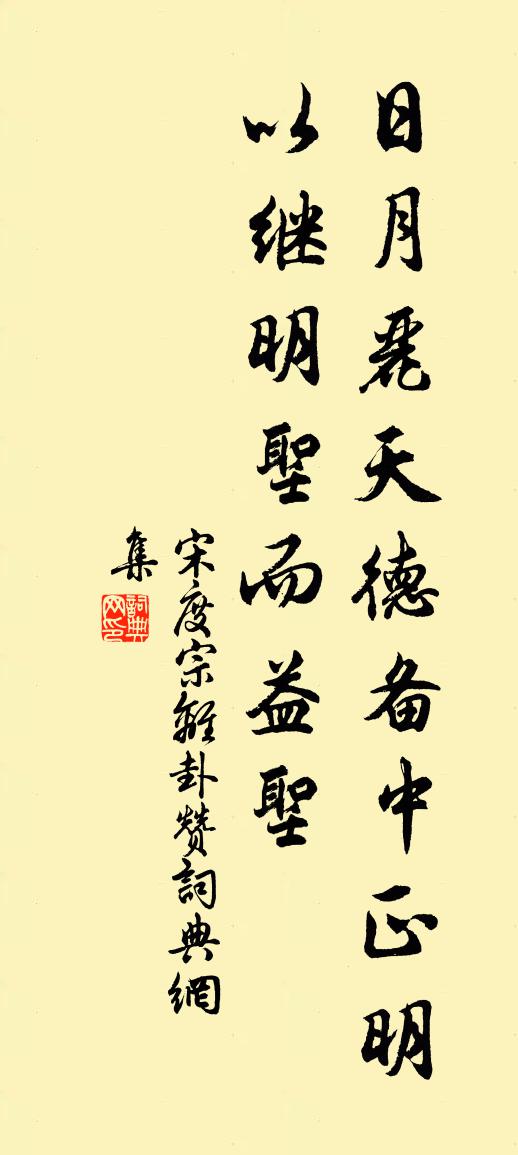 日月麗天德备中正明
以继明聖而益聖
宋度宗離卦赞詞典網
集
詞典
网印